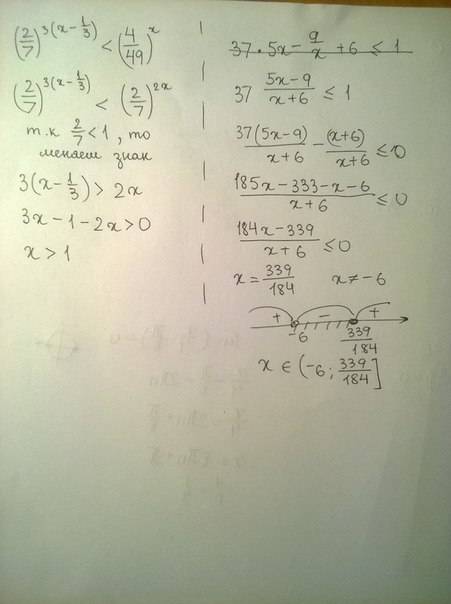 (2/7)^{3(x-1/3)} < (4/49)^x
(2/7)^{3(x-1/3)} < (2/7)^{2x}
т.к 2/7 < 1, то
меняем знак
3(x-1/3) > 2x
3x-1-2x>0
x > 1
37·5x-9/x+6 ≤ 1
37 (5x-9)/(x+6) ≤ 1
37(5x-9)/(x+6) - (x+6)/(x+6) ≤ 0
(185x-333-x-6)/(x+6) ≤ 0
(184x-339)/(x+6) ≤ 0
x = 339/184 x ≠ -6
+ - +
-6 339/184
x ∈ (-6; 339/184]